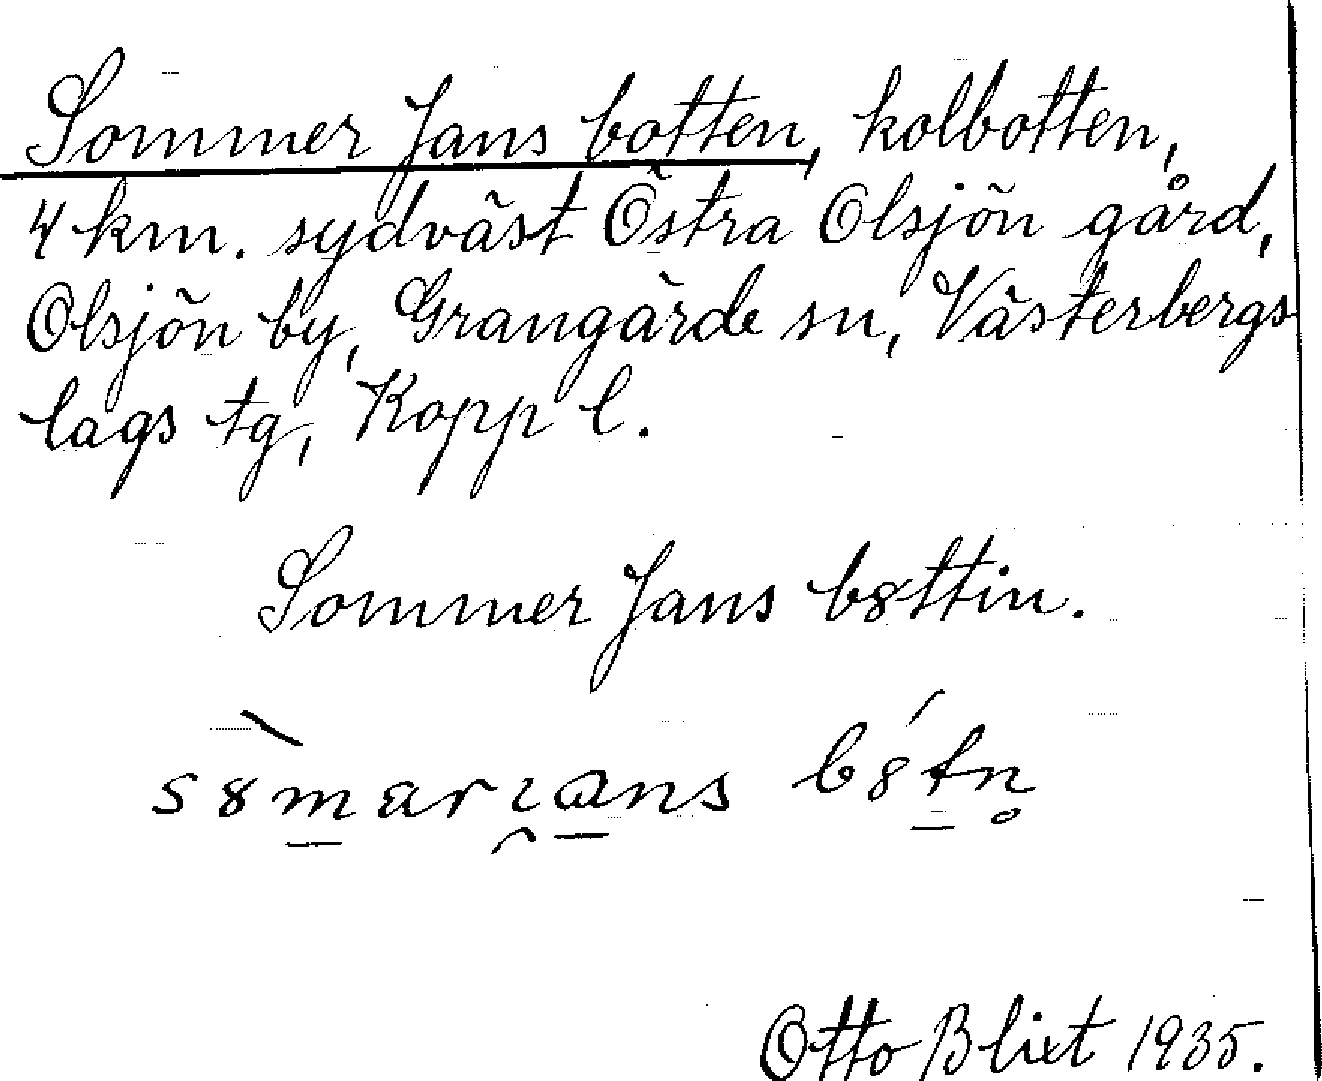 Sommer Jans botten, kolbotten,
4 km. sydväst Östra Olsjön gård,
Olsjön by, Grangärde sn, Västerbergs
lags tg, Kopp l.
Sommer Jans b8ttin.
s8̀m̲arɩ̯a̲ns b8́t̲n̥
Otto Blixt 1935.